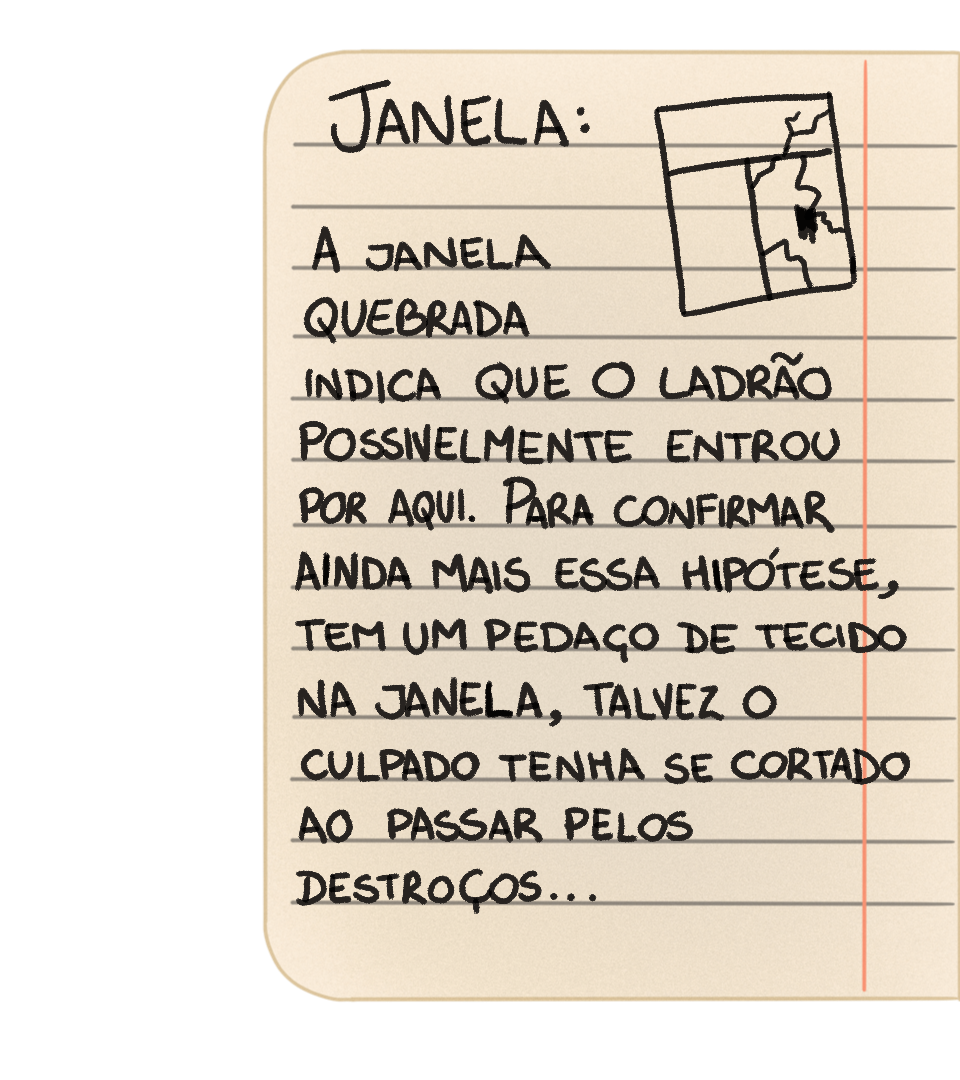 JANELA:
A JANELA
QUEBRADA
INDICA QUE O LADRÃO
POSSIVELMENTE ENTROU
POR AQUI. PARA CONFIRMAR
AINDA MAIS ESSA HIPÓTESE,
TEM UM PEDAÇO DE TECIDO
NA JANELA, TALVEZ O
CULPADO TENHA SE CORTADO
AO PASSAR PELOS
DESTROÇOS...